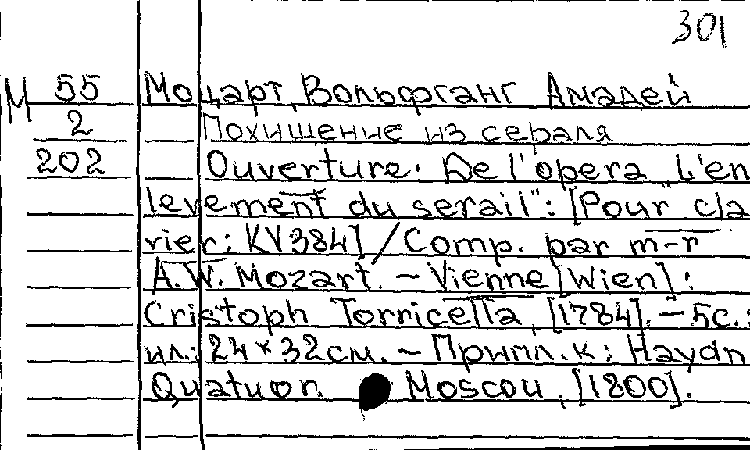 301
М 55 Моцарт, Вольфганг Амадей
2 Похищение из сераля
202 Ouverture. De l'opera "L'en
levement du serail": [Pour cla
vier: KV384] / Comp. par m-r
A.W. Mozart. – Vienne [Wien]:
Cristoph Torricella, [1784]. – 5с.:
ил.; 24 × 32см. – Приплл.к: Haydn
Quatuor. Moscou, [1800].